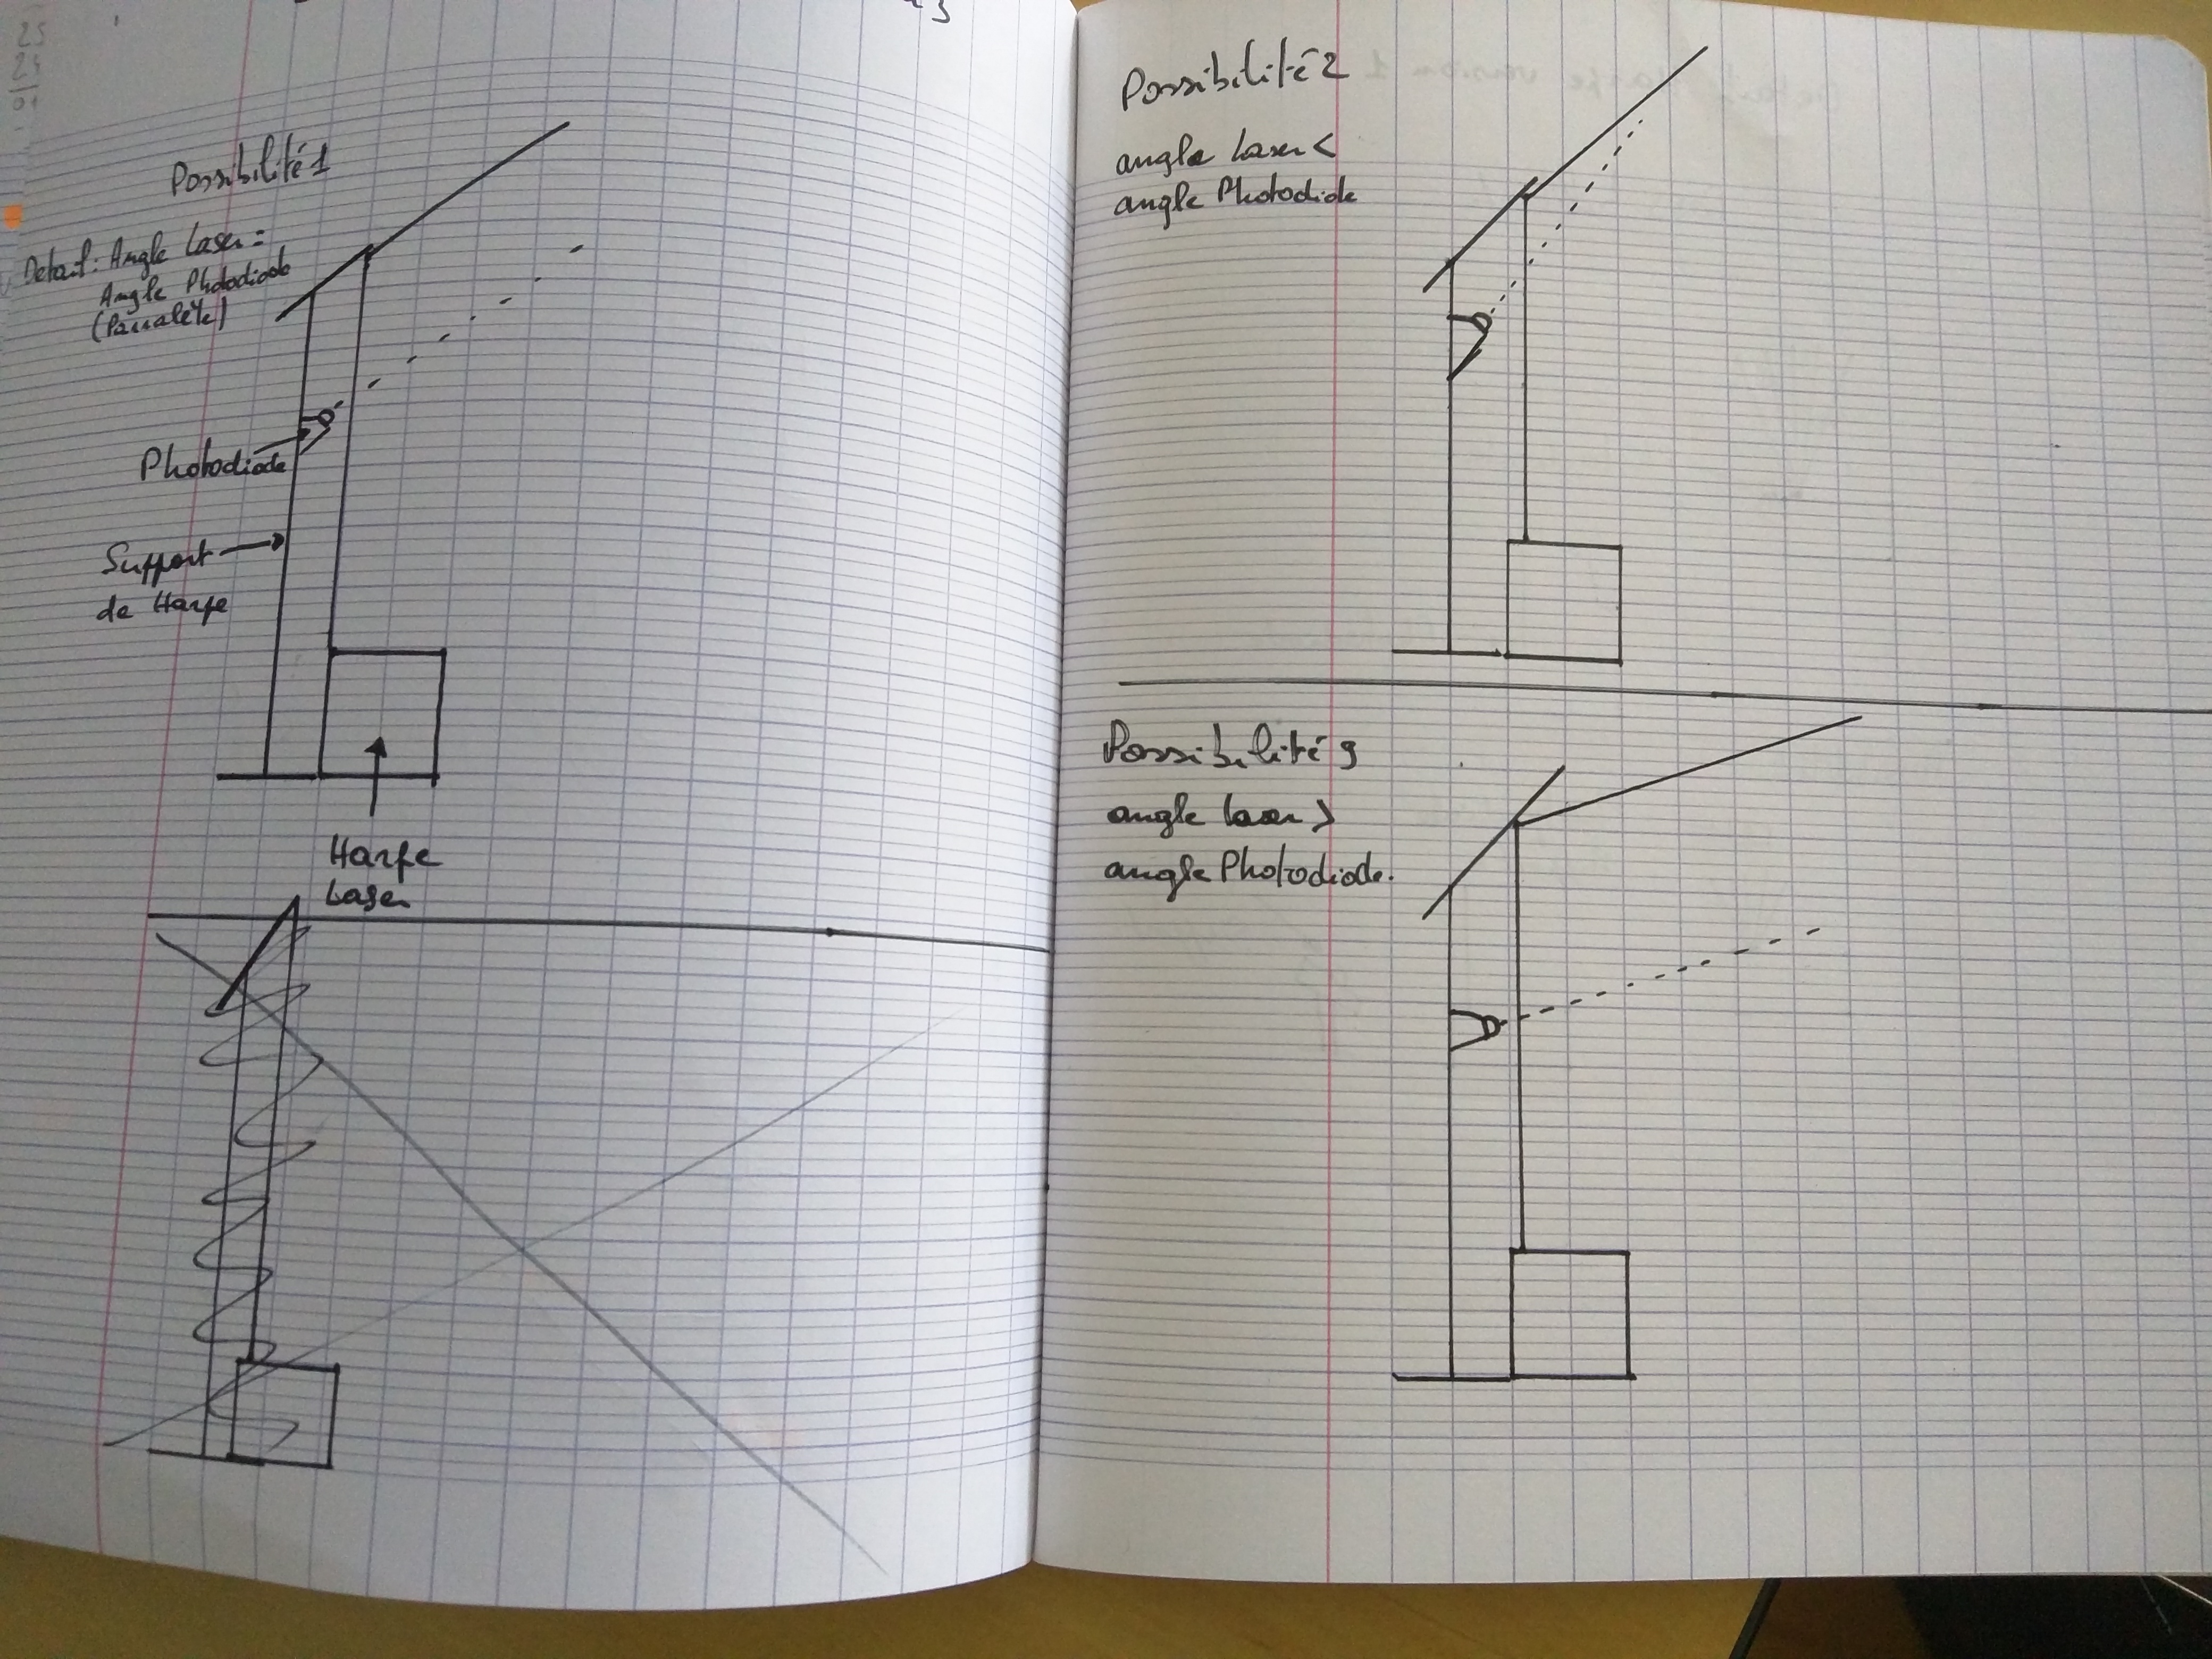 25
24
01
Possibilité 1
Detail: Angle Laser =
Angle Photodiode
(Parralèle)
Photodiode
Support
de Harpe
Harpe
Laser
Possibilité 2
angle laser <
angle Photodiode
Possibilité 3
angle laser >
angle Photodiode.